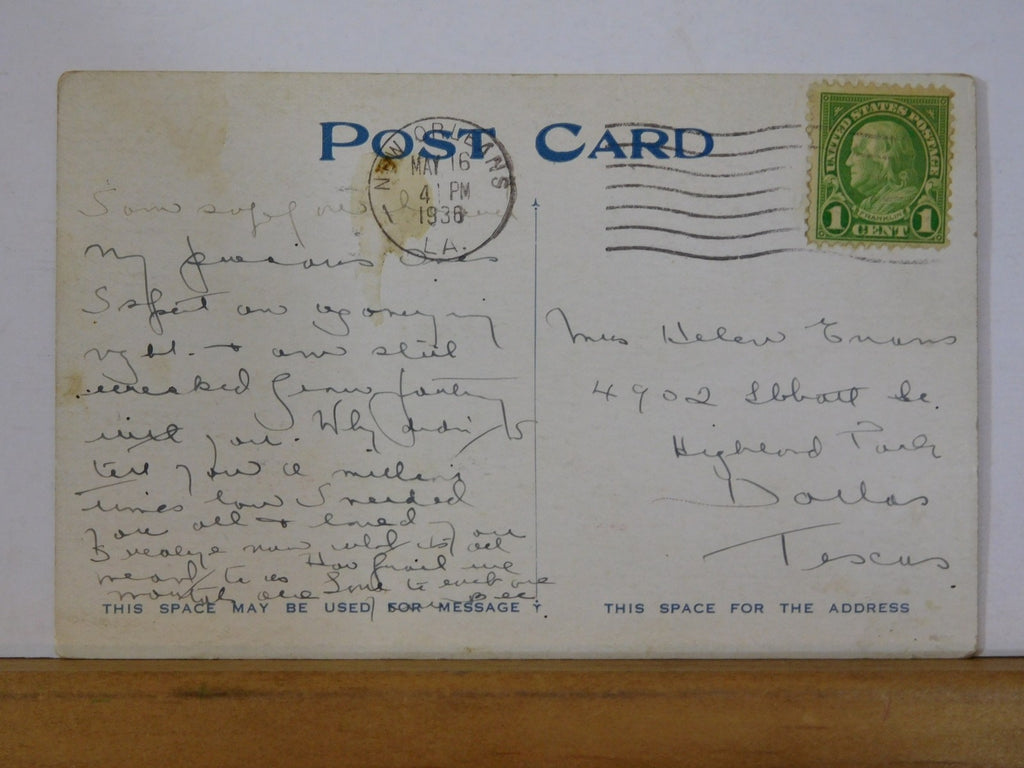 POST CARD
NEW ORLEANS
MAY 16
4 PM
1936
LA.
1
UNITED STATES POSTAGE
FRANKLIN
1 CENT 1
My precious
I spent an agonizing
night & am still
wrecked from parting
with you. Why didn't I
tell you a million
times how I needed
you all & loved you
I realize now what you all
meant to us How frail we
mortals are Love to each one
Mrs Helen Evans
4902 Abbott
Highland Park
Dallas
Texas
THIS SPACE MAY BE USED FOR MESSAGE
THIS SPACE FOR THE ADDRESS